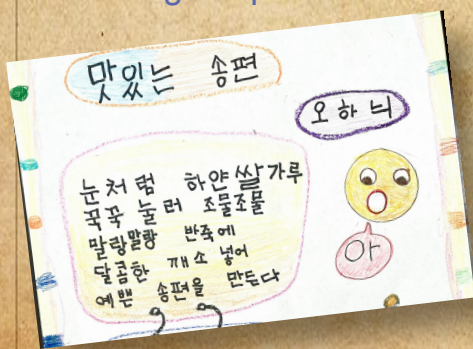 맛있는 송편
오하늬
눈처럼 하얀쌀가루
꾹꾹 눌러 조물조물
말랑말랑 반죽에
달콤한 깨소 넣어
예쁜 송편을 만든다
아